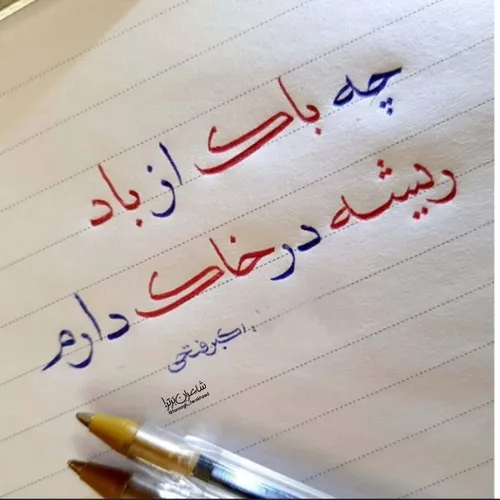 چه باک از باد
ریشه در خاک دارم
اکبر فتحی
شاعران برتر